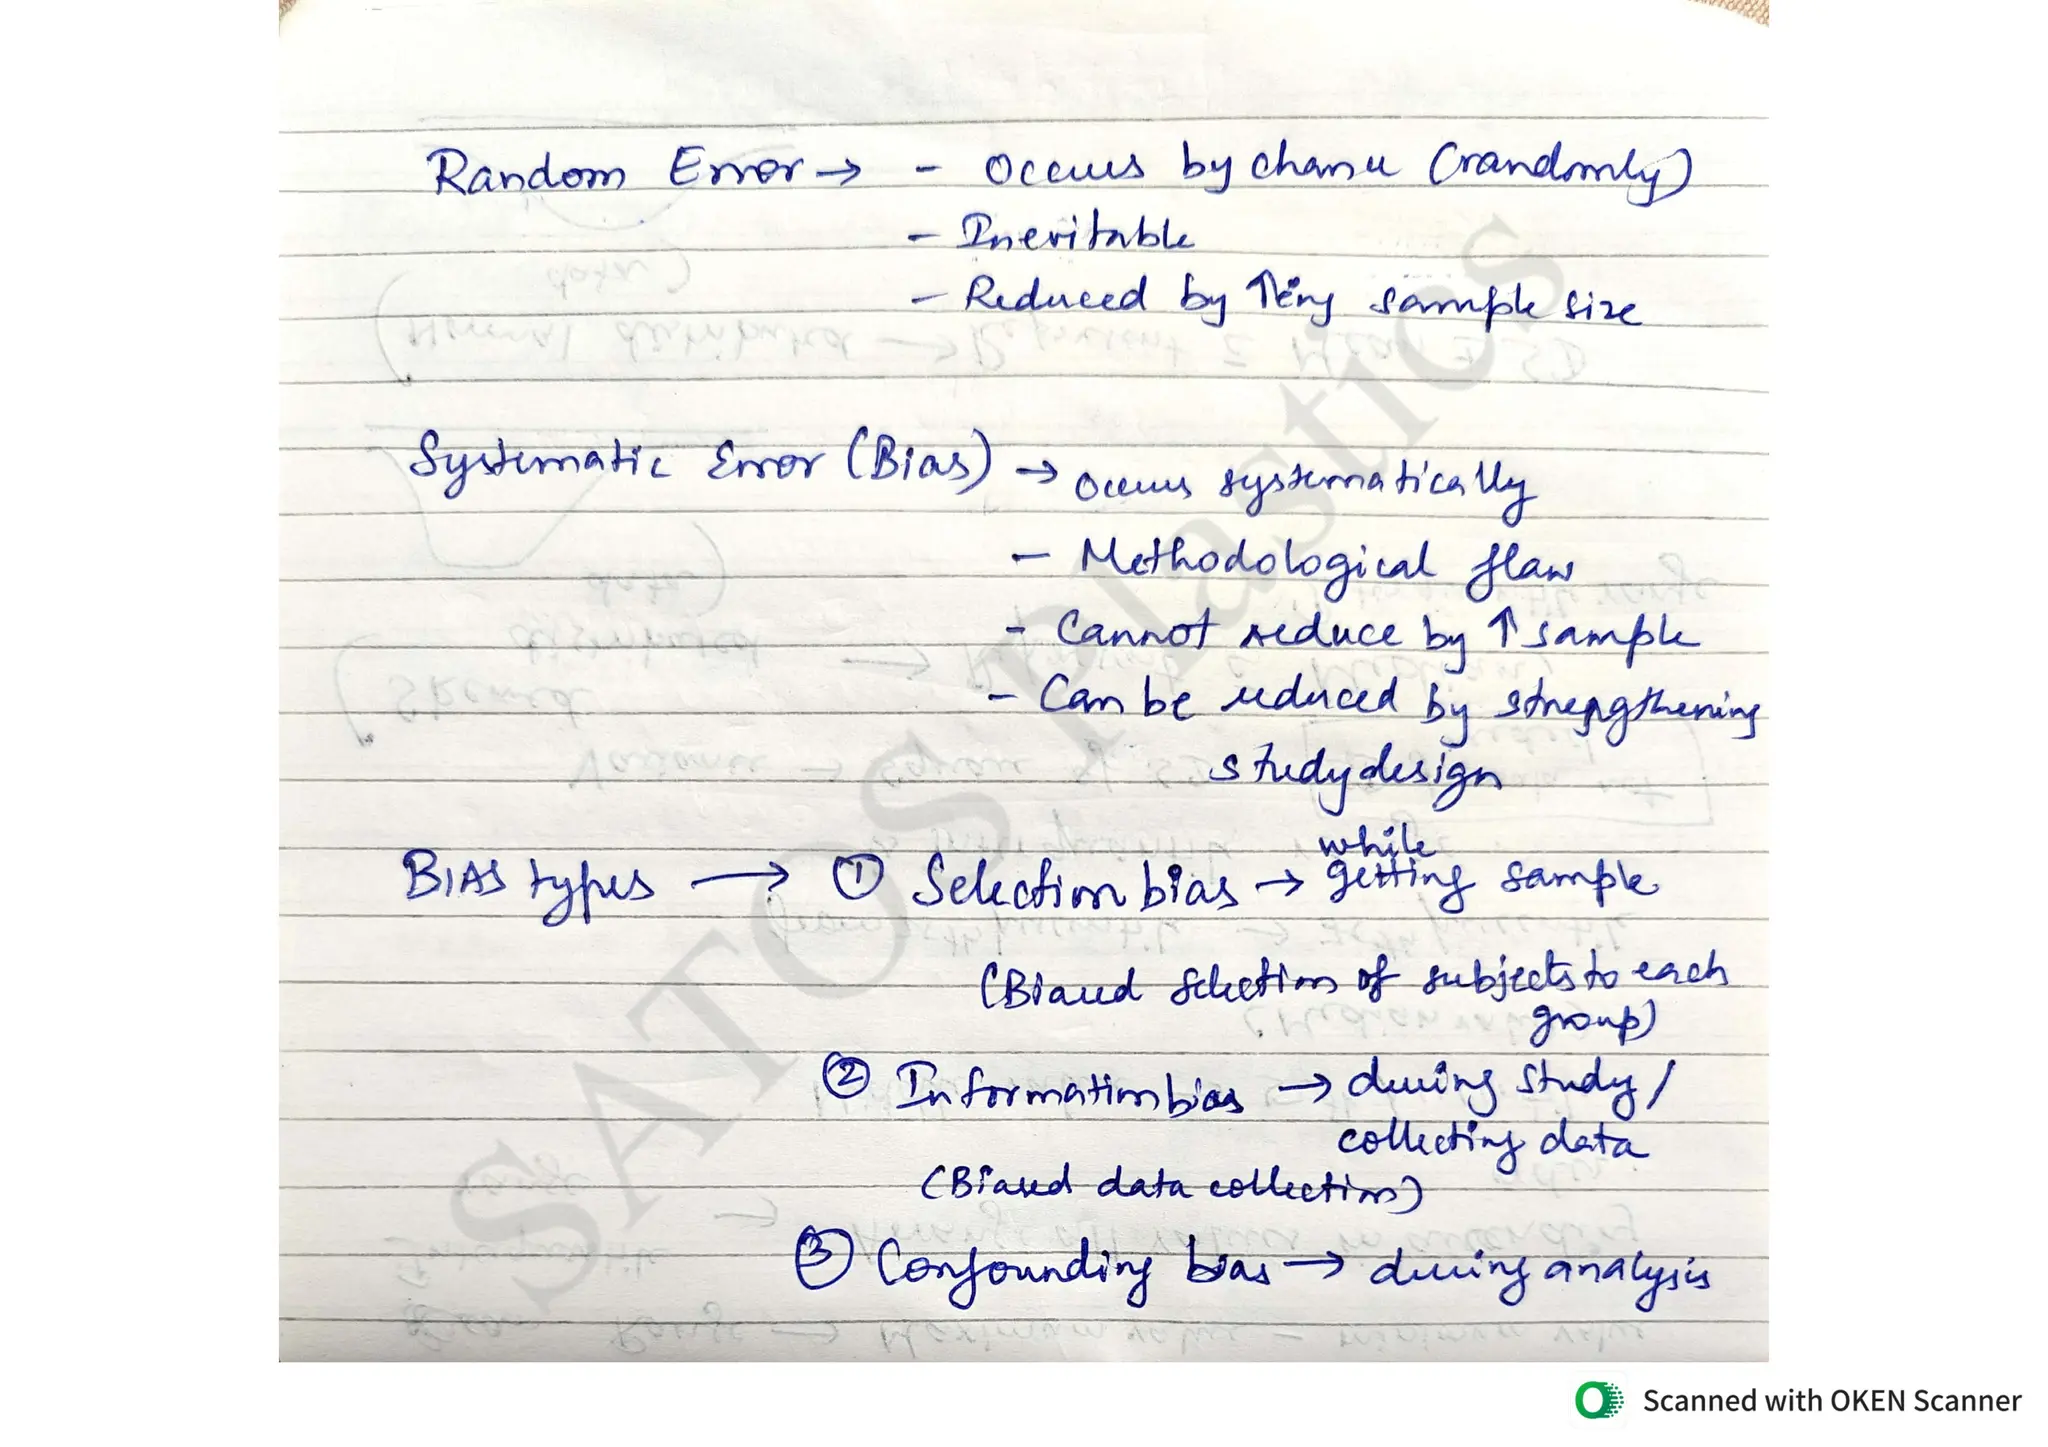 Random Error → - Occurs by chance (randomly)
- Inevitable
- Reduced by ↑eing sample size
Systematic Error (Bias) → Occurs systematically
- Methodological flaw
- Cannot reduce by ↑ sample
- Can be reduced by strengthening
study design
BIAS types → ① Selection bias → while getting sample
(Biased selection of subjects to each
group)
② Information bias → during study /
collecting data
(Biased data collection)
③ Confounding bias → during analysis
SATOS Plastics
Scanned with OKEN Scanner